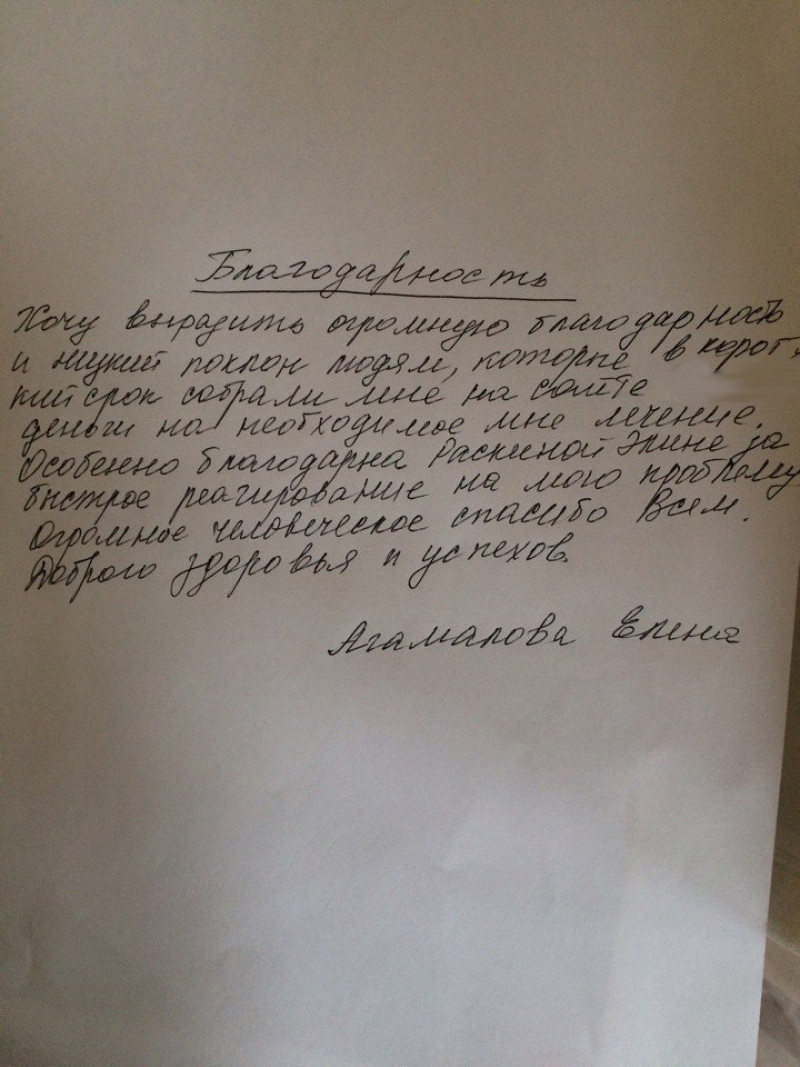 Благодарность
Хочу выразить огромную благодарность
и низкий поклон людям, которые в корот-
кий срок собрали мне на сайте
деньги на необходимое мне лечение.
Особенно благодарна Раскиной Элине за
быстрое реагирование на мою проблему
Огромное человеческое спасибо Всем.
Доброго здоровья и успехов.
Агамалова Елена